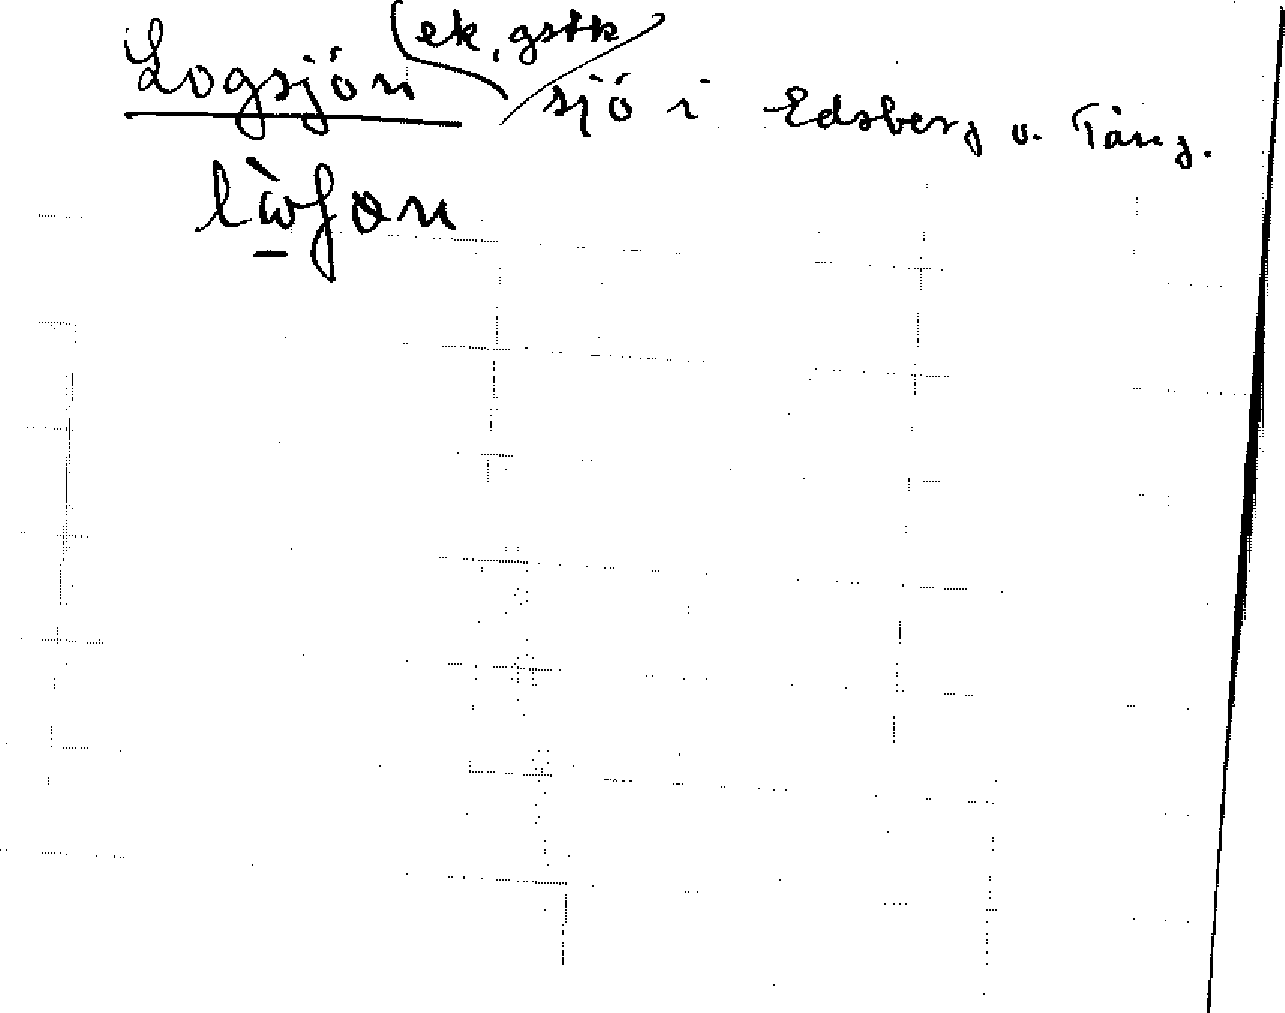 (ek, gstk)
Logsjön sjö i Edsberg o. Tång.